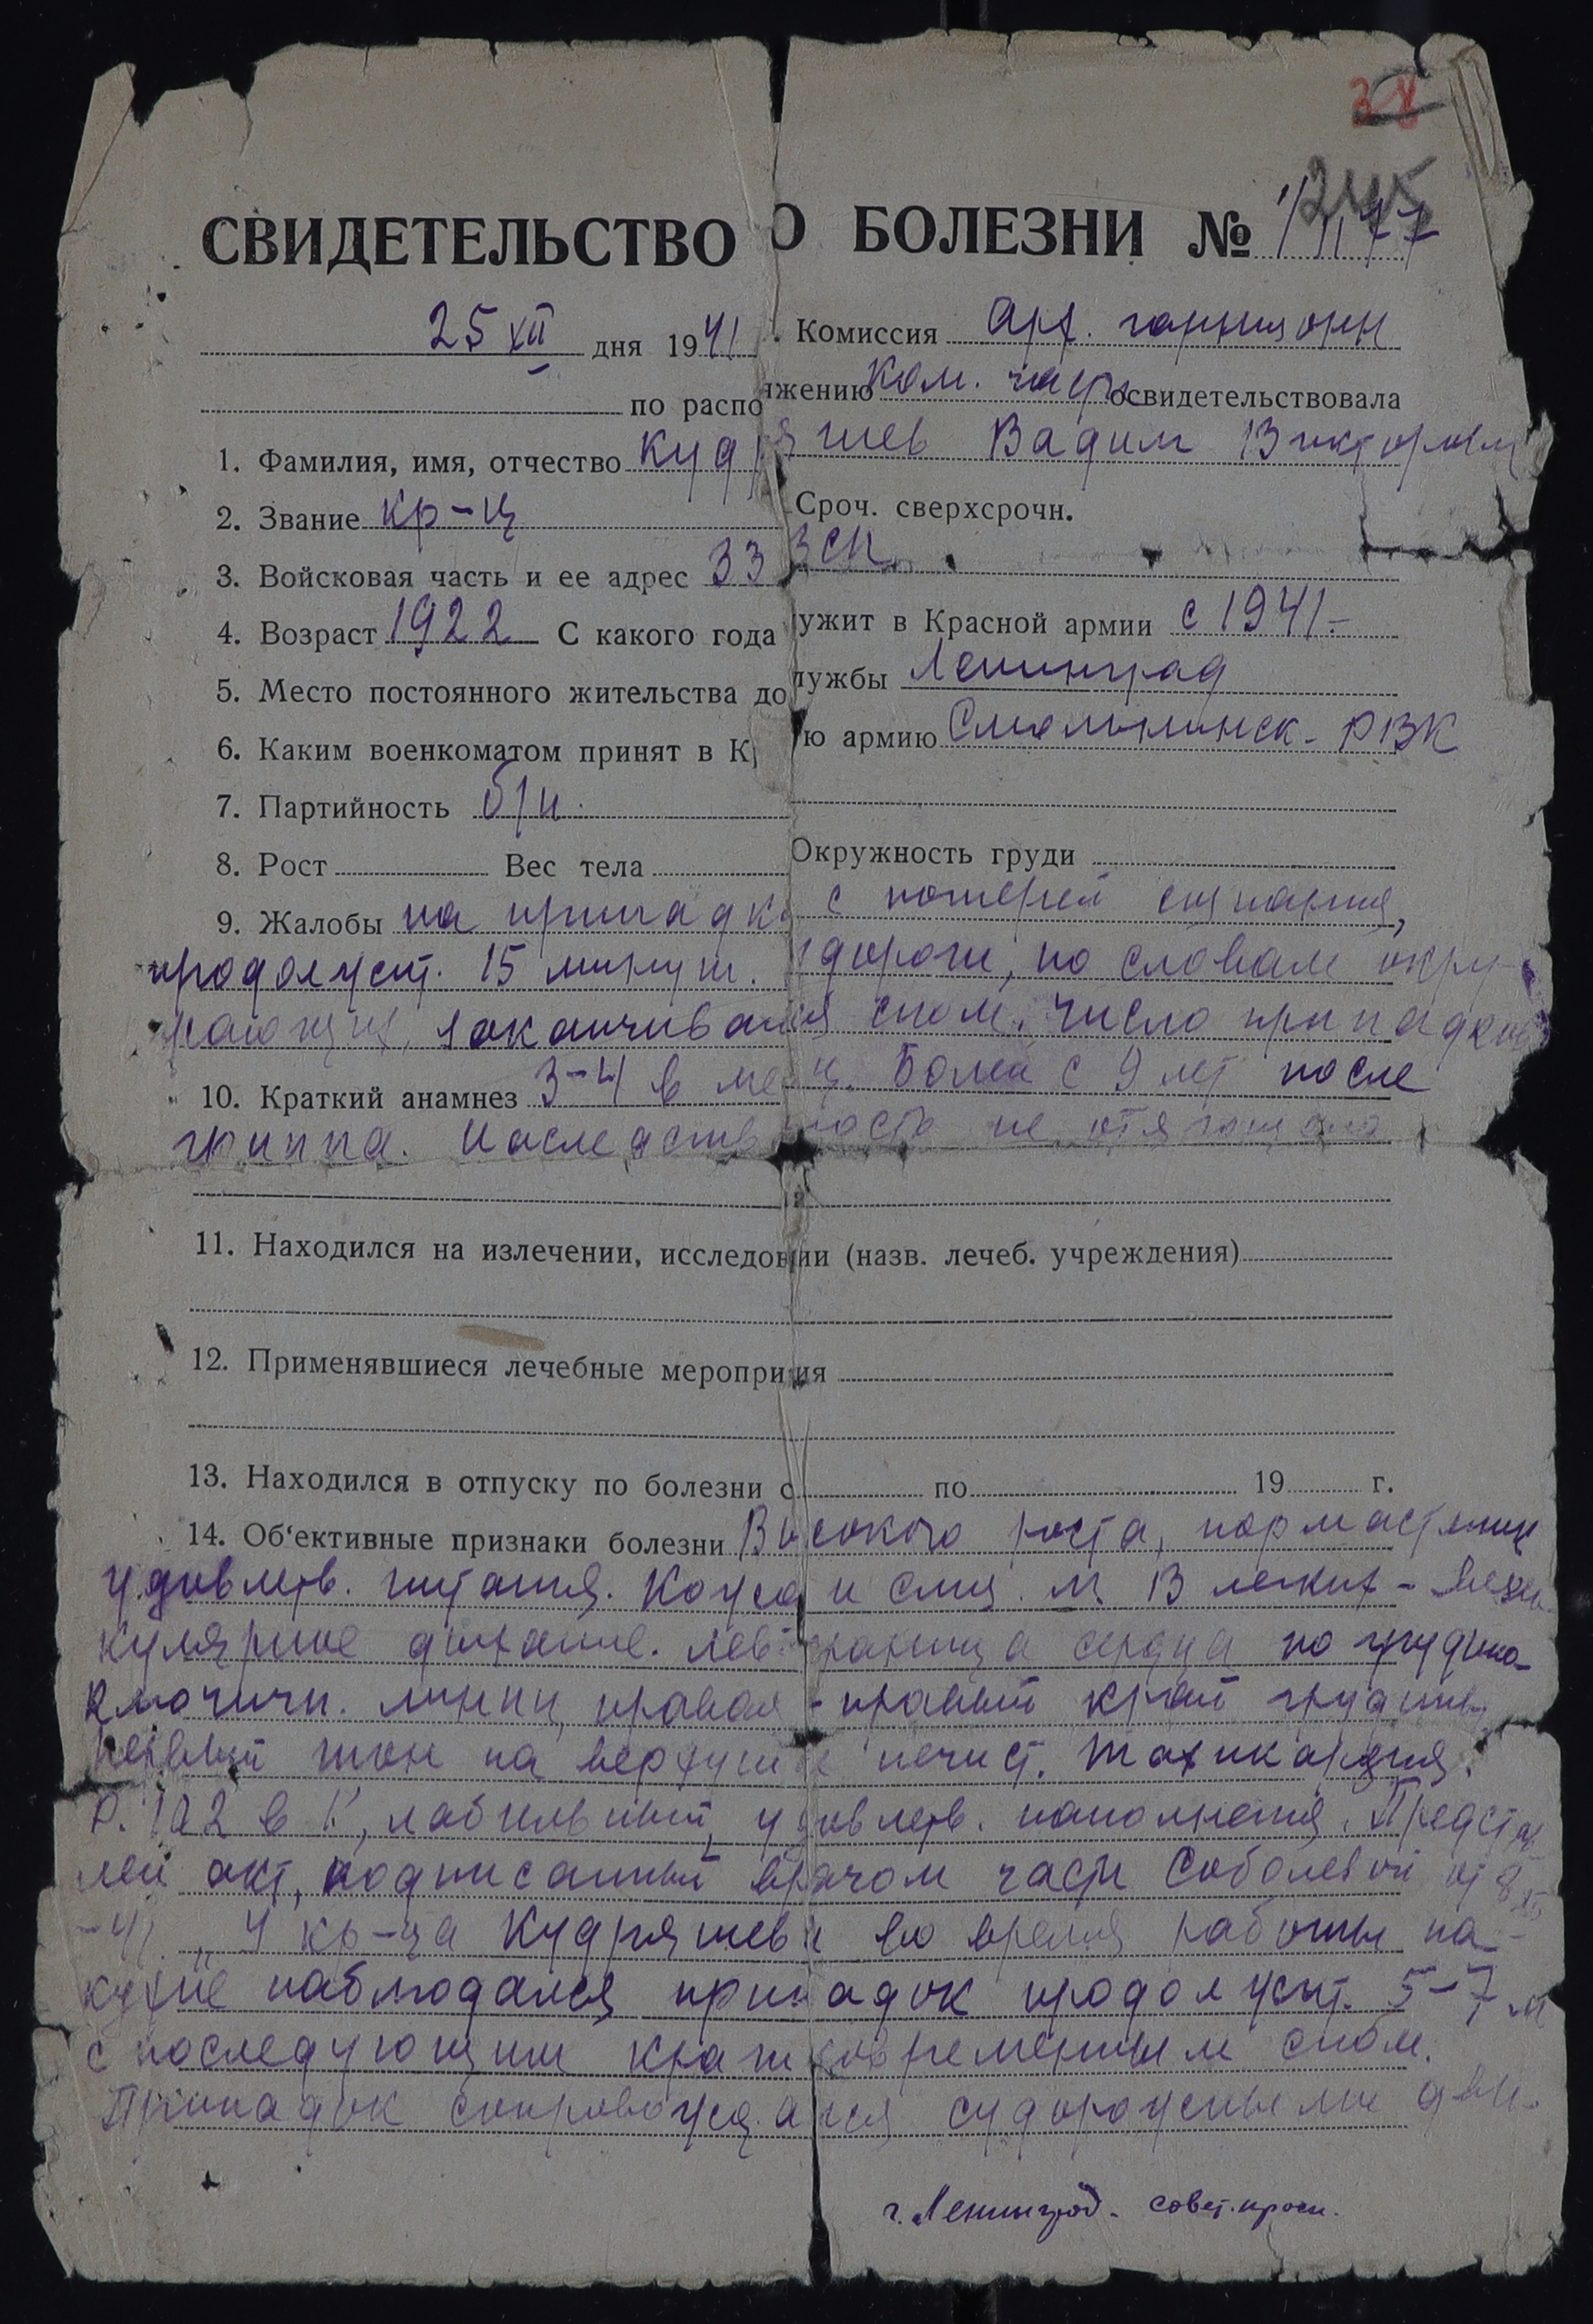 38
245
СВИДЕТЕЛЬСТВО О БОЛЕЗНИ №
25 XII дня 1941 Комиссия гарнизонн
по распо яжению ком. части освидетельствовала
1. Фамилия, имя, отчество Кудряшев Вадим Викторович
2. Звание кр-ц Сроч. сверхсрочн.
3. Войсковая часть и ее адрес 33 3СП
4. Возраст 1922 С какого года ужит в Красной армии с 1941-
5. Место постоянного жительства до лужбы Ленинград
6. Каким военкоматом принят в К ю армию Смольнинск. РВК
7. Партийность б/п.
8. Рост Вес тела Окружность груди
9. Жалобы на припадки с потерей сознания,
продолжит. 15 минут. судороги, по словам окру-
жающих, заканчивался сном. Число припадков
10. Краткий анамнез 3-4 в мес-ц. Болен с 9 лет после
гриппа. Наследственность не отягощена
11. Находился на излечении, исследов ии (назв. лечеб. учреждения)
12. Применявшиеся лечебные меропри ия
13. Находился в отпуску по болезни с по 19 г.
14. Об'ективные признаки болезни Высокого роста, нормастеник
удовлетв. питания. Кожа и слиз. В легких - вези
кулярное дыхание. Лев. граница сердца по грудино-
ключичн. линии, правая - правый край грудины,
первый тон на верхушке нечист. Тахикардия.
P. 102 в 1', лабильный, удовлетв. наполнения. Представ
лен акт, подписанный врачом части Соболевой от 8 XII
-41. "У кр-ца Кудряшева во время работы на
кухне наблюдался припадок продолжит. 5-7 м
с последующим кратковременным сном.
Припадок сопровождался судорожными дви-
г. Ленинград. совет. просп.